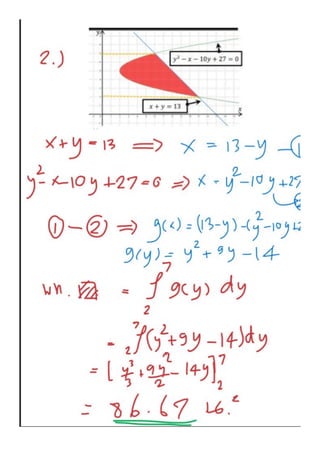 2.)
y
y² - x - 10y + 27 = 0
x + y = 13
x
x+y=13 ⟹ x = 13-y —①
y²-x-10y+27=0 ⟹ x = y²-10y+27
①-②⟹ g(x)=(13-y)-(y²-10y+
g(y)= y²+9y-14
= ∫₂⁷ g(y) dy
= ₂∫⁷(y²+9y-14)dy
= [y³/3+9y²/2-14y]₂⁷
= 86.67